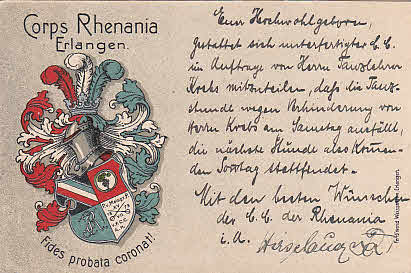 Corps Rhenania
Erlangen.
Fides probata coronat!
Euer Hochwohlgeboren,
gestattet sich unterfertigter C. C.
im Auftrage von Herrn Tanzlehrer
Krebs mitzuteilen, daß die Tanz-
stunde wegen Verhinderung von
Herrn Krebs am Samstag ausfällt,
die nächste Stunde also kommen-
den Sonntag stattfindet.
Mit den besten Wünschen
der C. C. der Rhenania
i. A.